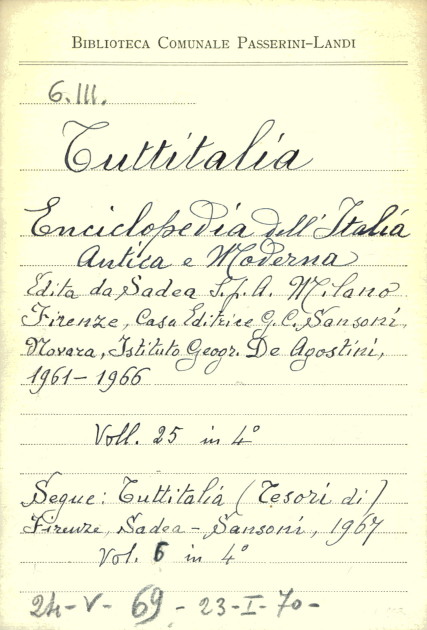 BIBLIOTECA COMUNALE PASSERINI-LANDI
6.III.
Tuttitalia
Enciclopedia dell'Italia
Antica e Moderna
Edita da Sadea S.p.A. Milano.
Firenze, Casa Editrice G.C. Sansoni,
Novara, Istituto Geogr. De Agostini,
1961-1966
Voll. 25 in 4°
Segue: Tuttitalia (Tesori di)
Firenze, Sadea-Sansoni, 1967
Vol. 6 in 4°
24-V-69-23-I-70-